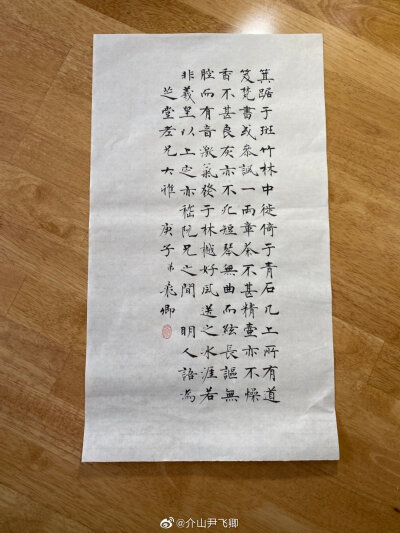 箕踞于斑竹林中徙倚于青石几上所有道
笈梵書或参諷一兩章茶不甚精壺亦不燥
香不甚良灰亦不死短琴無曲而弦長謳無
腔而有音激氣發于林樾好风送之水涯若
非羲皇以上定亦嵇阮兄之間 明人語为
芝堂老兄大雅 庚子 弟飛卿
@介山尹飞卿